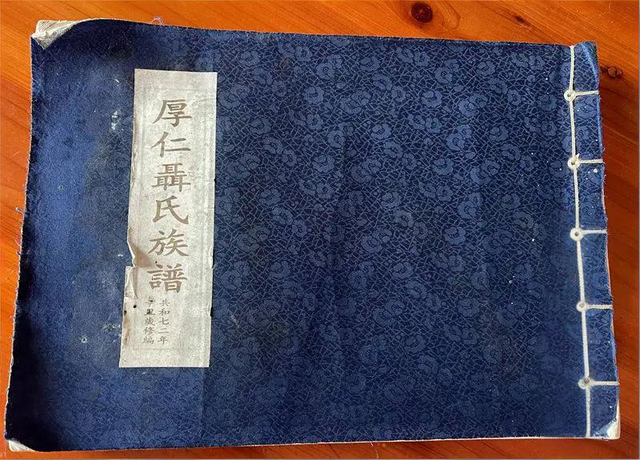 厚仁聶氏族譜
共和七二年
歲修編